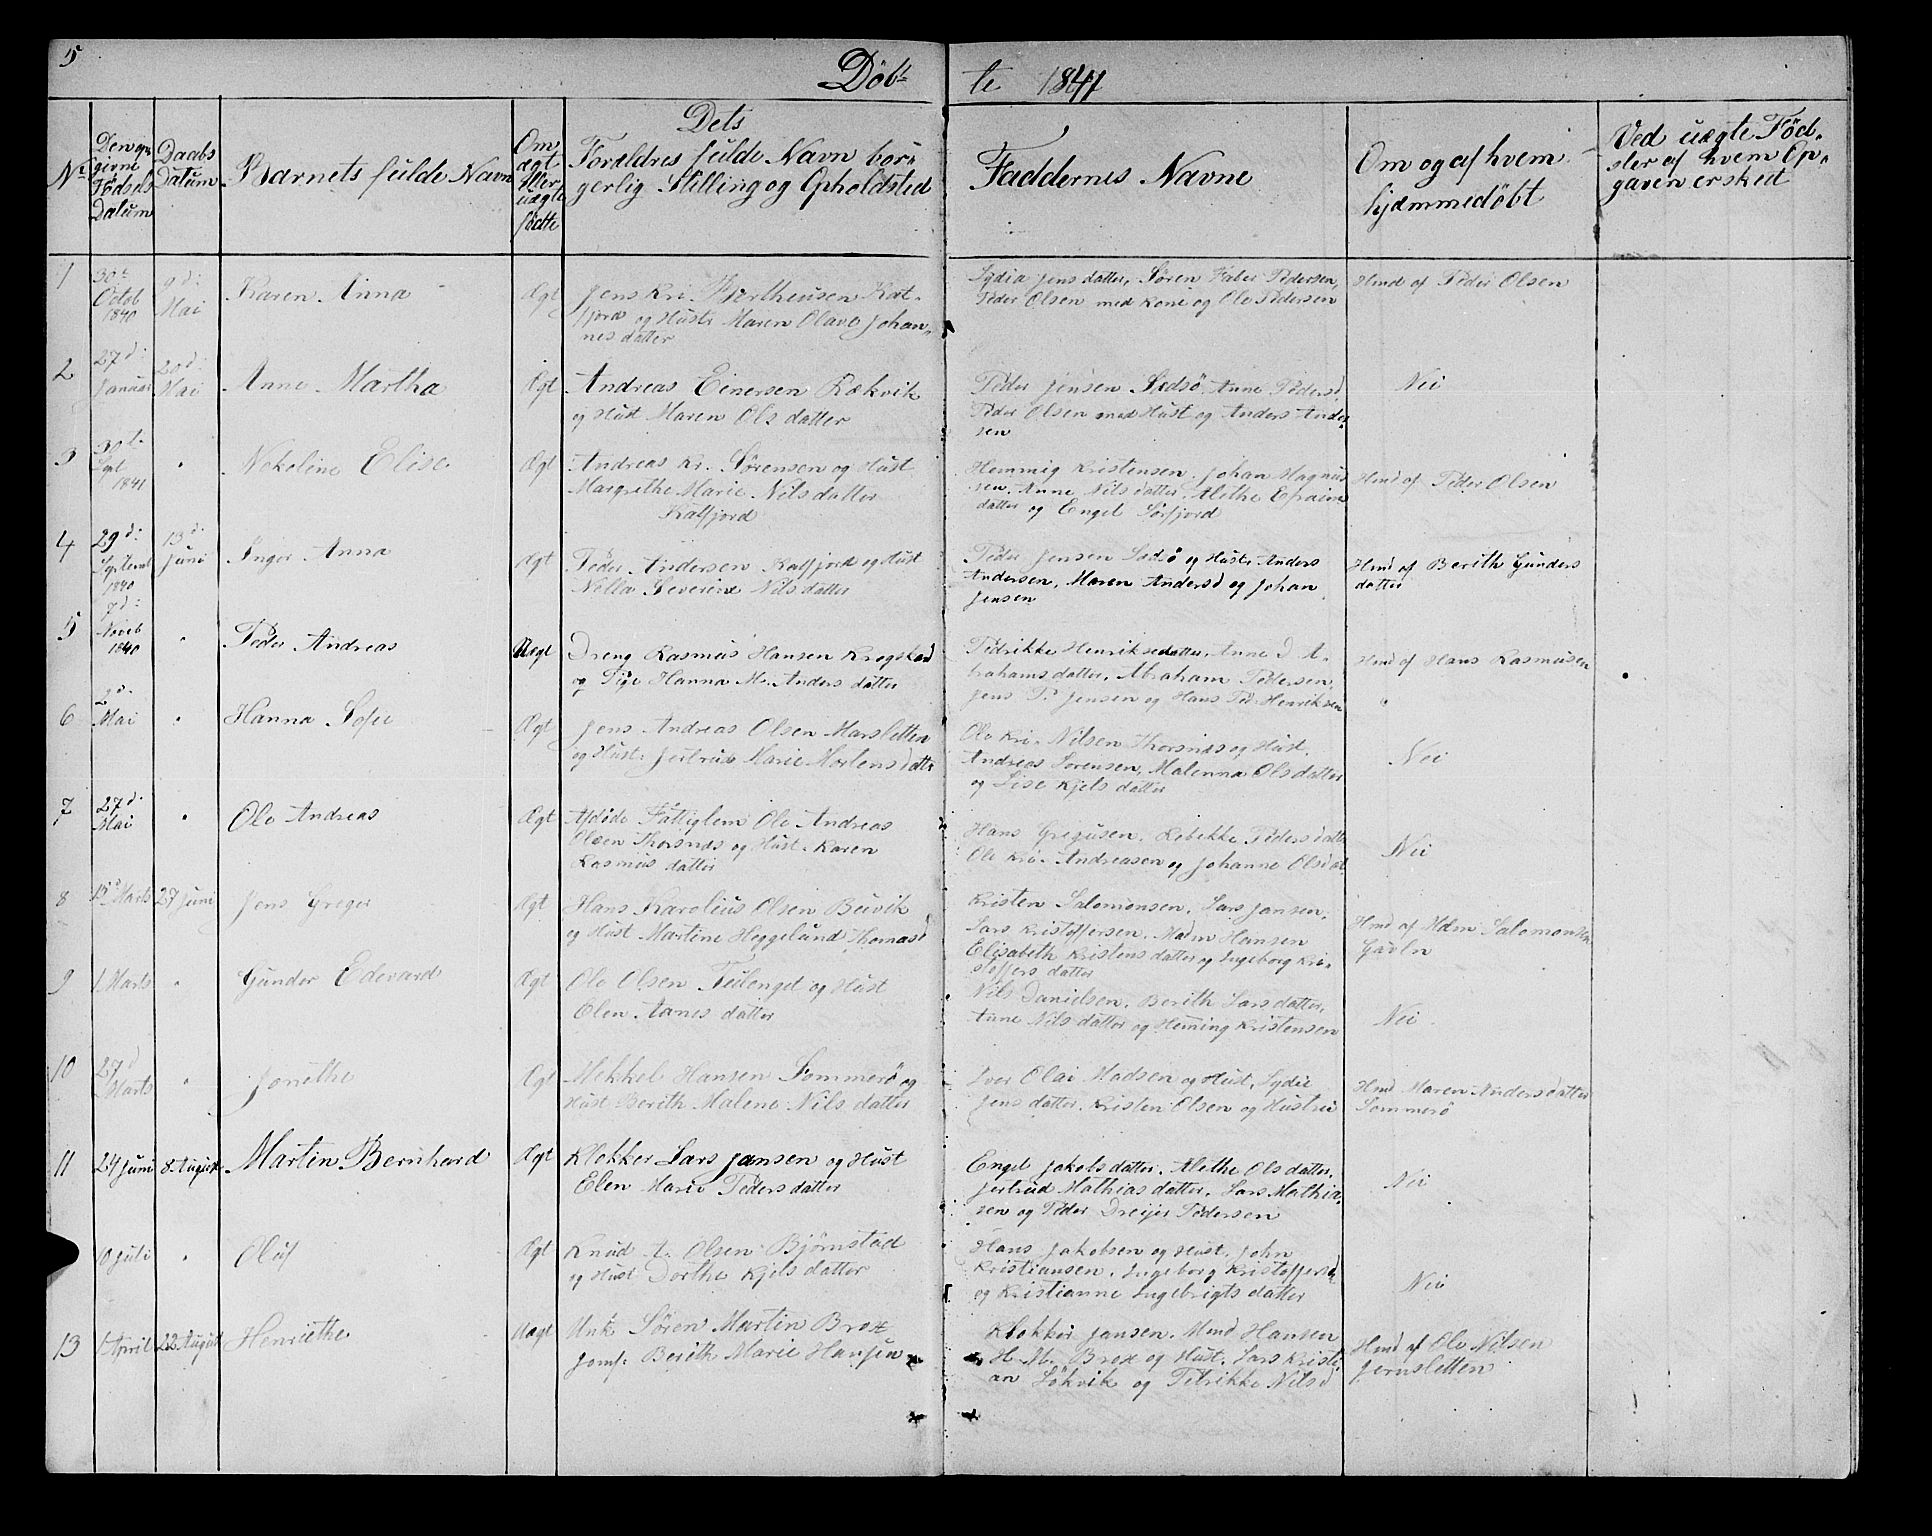 5
Døb-
te 1841
Nr
Den op-
givne
Fødsels
Datum
Daabs
Datum
Barnets fulde Navn
Om
ægt
eller
uægte
fødte
Dets
Forældres fulde Navn bor-
gerlig Stilling og Opholdsted
Faddernes Navne
Om og af hvem
hjemmedøbt
Ved uægte Fød-
sler af hvem Op-
gaven er sked
1
30te
Octob
1840
9d:
Mai
Karen Anna
Ægt
Jens Kri. Bertheusen Kat-
fjord og Hustr Maren Olava Johan-
nesdatter
Lydia Jensdatter, Søren Faber Pedersen,
Peder Olsen med Kone og Ole Pedersen
Hmd af Peder Olsen
2
27d:
Januar
20d:
Mai
Anne Martha
Ægt
Andreas Einersen Rekvik
og Hust Maren Olsdatter
Peder Jensen Sedsø Anne Pedersd
Peder Olsen med Hust og Anders Ander-
sen
Nei
3
30te
Spt
1841
"
Nekoline Elise
Ægt
Andreas Kr. Sørensen og Hust
Margrethe Marie Nilsdatter
Katfjord
Hemmig Kristensen, Johan Magnus
sen, Anne Nilsdatter, Alethe Efraims
datter og Engel Sørfjord
Hmd af Peder Olsen
4
29d:
Septembr
1840
13d:
Juni
Inger Anna
Ægt
Peder Andersen Katfjord og Hust
Nella Severine Nilsdatter
Peder Jensen Sedsø og Hustr, Anders
Andersen, Maren Andersd og Johan
Jensen
Hmd af Berith Gunders
datter
5
7d:
Novb
1840
"
Peder Andreas
Uægt
Dreng Rasmus Hansen Krogsked
og Pige Hanna M. Andersdatter
Pedrikke Henriksedatter, Anne D A-
brahamsdatter, Abraham Pedersen,
Jens P. Jensen og Hans Pd Henriksen
Hmd af Hans Rasmusen
6
2d:
Mai
"
Hanna Sofie
Ægt
Jens Andreas Olsen Marsletten
og Hust: Jertrud Marie Mortensdatter
Ole Kri. Nilsen Thorsnæs og Hust,
Andreas Sorensen, Malenna Olsdatter
og Lise Kjelsdatter
"
Nei
7
27d:
Mai
"
Ole Andreas
Ægt
Afdøde Fattiglem Ole Andreas
Olsen Thorsnæs og Hust. Karen
Rasmusdatter
Hans Gregusen, Rebekke Pedersdatter
Ole Kri. Andreasen og Johanne Olsdat
Nei
8
15d Marts
27 Juni
Jens Greger
Ægt
Hans Karolius Olsen Buvik
og Hust Martine Heggelund Thomasd
Kristen Salomonsen, Lars Jansen,
Lars Kristoffersen, Madm Hansen
Elisabeth Kristensdatter og Ingeborg Kri-
stoffersdatter
Hmd af Mdm Salomonsen
Gaveln
9
1 Marts
"
Gunder Edevard
Ægt
Ole Olsen Tulenget og Hust
Elen Aanesdatter
Nils Danielsen, Berith Larsdatter,
Anne Nilsdatter og Heming Kristensen
Nei
10
27d
Marts
"
Jonethe
Ægt
Mekkel Hansen Sommerø og
Hust Berith Malene Nilsdatter
Iver Olai Madsen og Hust, Lydie
Jensdatter, Kristen Olsen og Hustru
Hmd Maren Andersdatter
Sommerø
11
24 Juni
8 August
Martin Bernhard
Ægt
Klokker Lars Jansen og Hust
Elen Marie Pedersdatter
Engel Jakobsdatter, Alethe Olsdatter,
Jertrud Mathiasdatter, Lars Mathia-
sen og Peder Dreyer Pedersen
Nei
10 Juli
"
Oluf
Ægt
Knud A. Olsen Bjørnstad
og Hust Dorthe Kjelsdatter
Hans Jakobsen og Hust, John
Kristiansen, Ingeborg Kristoffersd
og Kristianne Ingebrigtsdatter
Nei
13
1 April
22 August
Henriethe
Uægt
Unk Søren Martin Brox
Jomf: Berith Marie Hansen
Klokker Jansen, Mmd Hansen
H. M. Brox og Hust, Lars Kristi-
an Løkvik og Petrikke Nilsd
Hmd af Ole Nilsen
Jernsletten